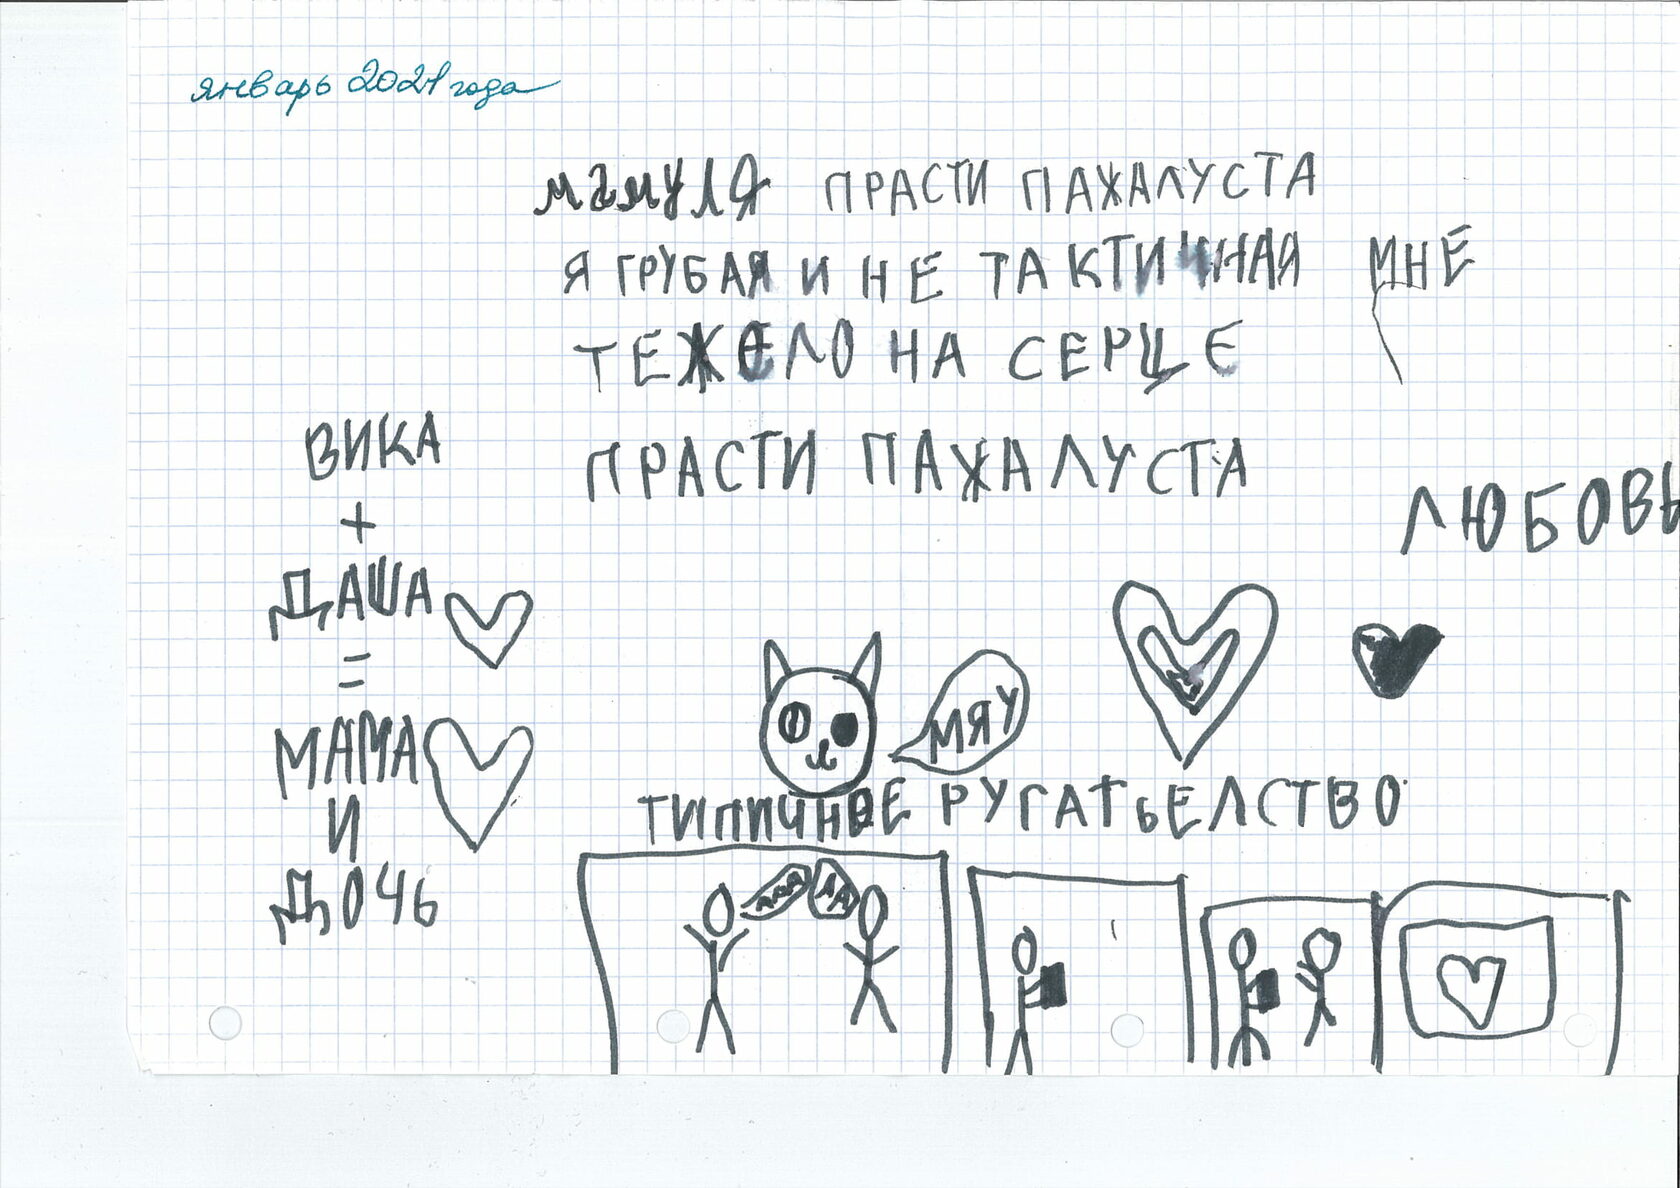 январь 2021 года
мамуля ПРАСТИ ПАЖАЛУСТА
Я ГРУБАЯ И НЕ ТАКТИЧНАЯ МНЕ
ТЕЖЕЛО НА СЕРЦЕ
ПРАСТИ ПАЖАЛУСТА
ЛЮБОВЬ
ВИКА
+
ДАША
=
МАМА
И
ДОЧЬ
МЯУ
ТИПИЧНОЕ РУГАТЬЕЛСТВО